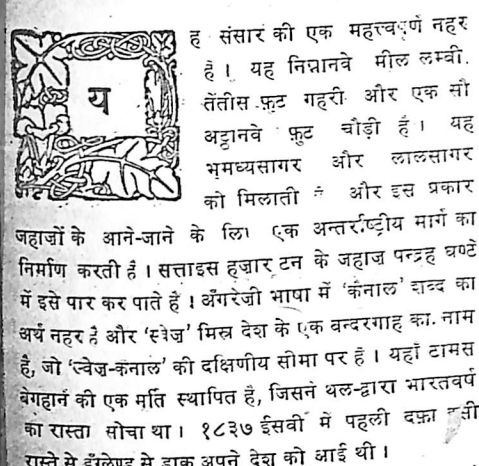 यह संसार की एक महत्त्वपूर्ण नहर
है । यह निन्नानवे मील लम्बी.
तेंतीस फ़ुट गहरी और एक सौ
अट्ठानवे फ़ुट चौड़ी है । यह
भूमध्यसागर और लालसागर
को मिलाती है और इस प्रकार
जहाज़ों के आने-जाने के लिए एक अन्तर्राष्ट्रीय मार्ग का
निर्माण करती है । सत्ताइस हज़ार टन के जहाज़ पन्द्रह घण्टे
में इसे पार कर पाते हैं । अँगरेज़ी भाषा में 'कॅनाल' शब्द का
अर्थ नहर है और 'स्वेज़' मिस्र देश के एक बन्दरगाह का. नाम
है, जो 'स्वेज़-कॅनाल' की दक्षिणीय सीमा पर है । यहाँ टामस
वेगहार्न की एक मूर्ति स्थापित है, जिसने थल-द्वारा भारतवर्ष
का रास्ता सोचा था । १८३७ ईसवी में पहली दफ़ा इसी
रास्ते से इँग्लैण्ड से डाक अपने देश को आई थी ।